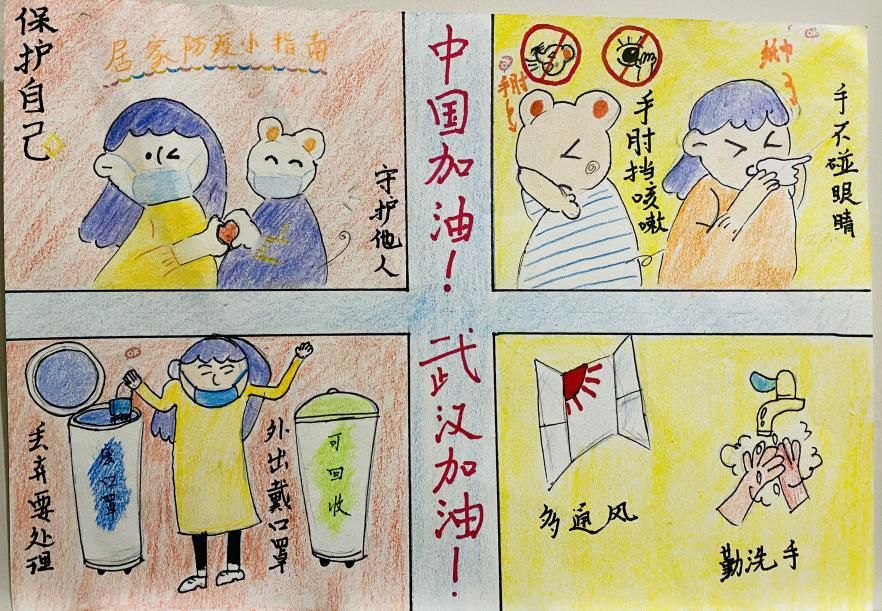 保护自己
居家防疫小指南
守护他人
中国加油！
武汉加油！
OK
手肘
手肘挡咳嗽
纸巾
OK
手不碰眼睛
OK
丢弃要处理
废口罩
外出戴口罩
可回收
多通风
勤洗手